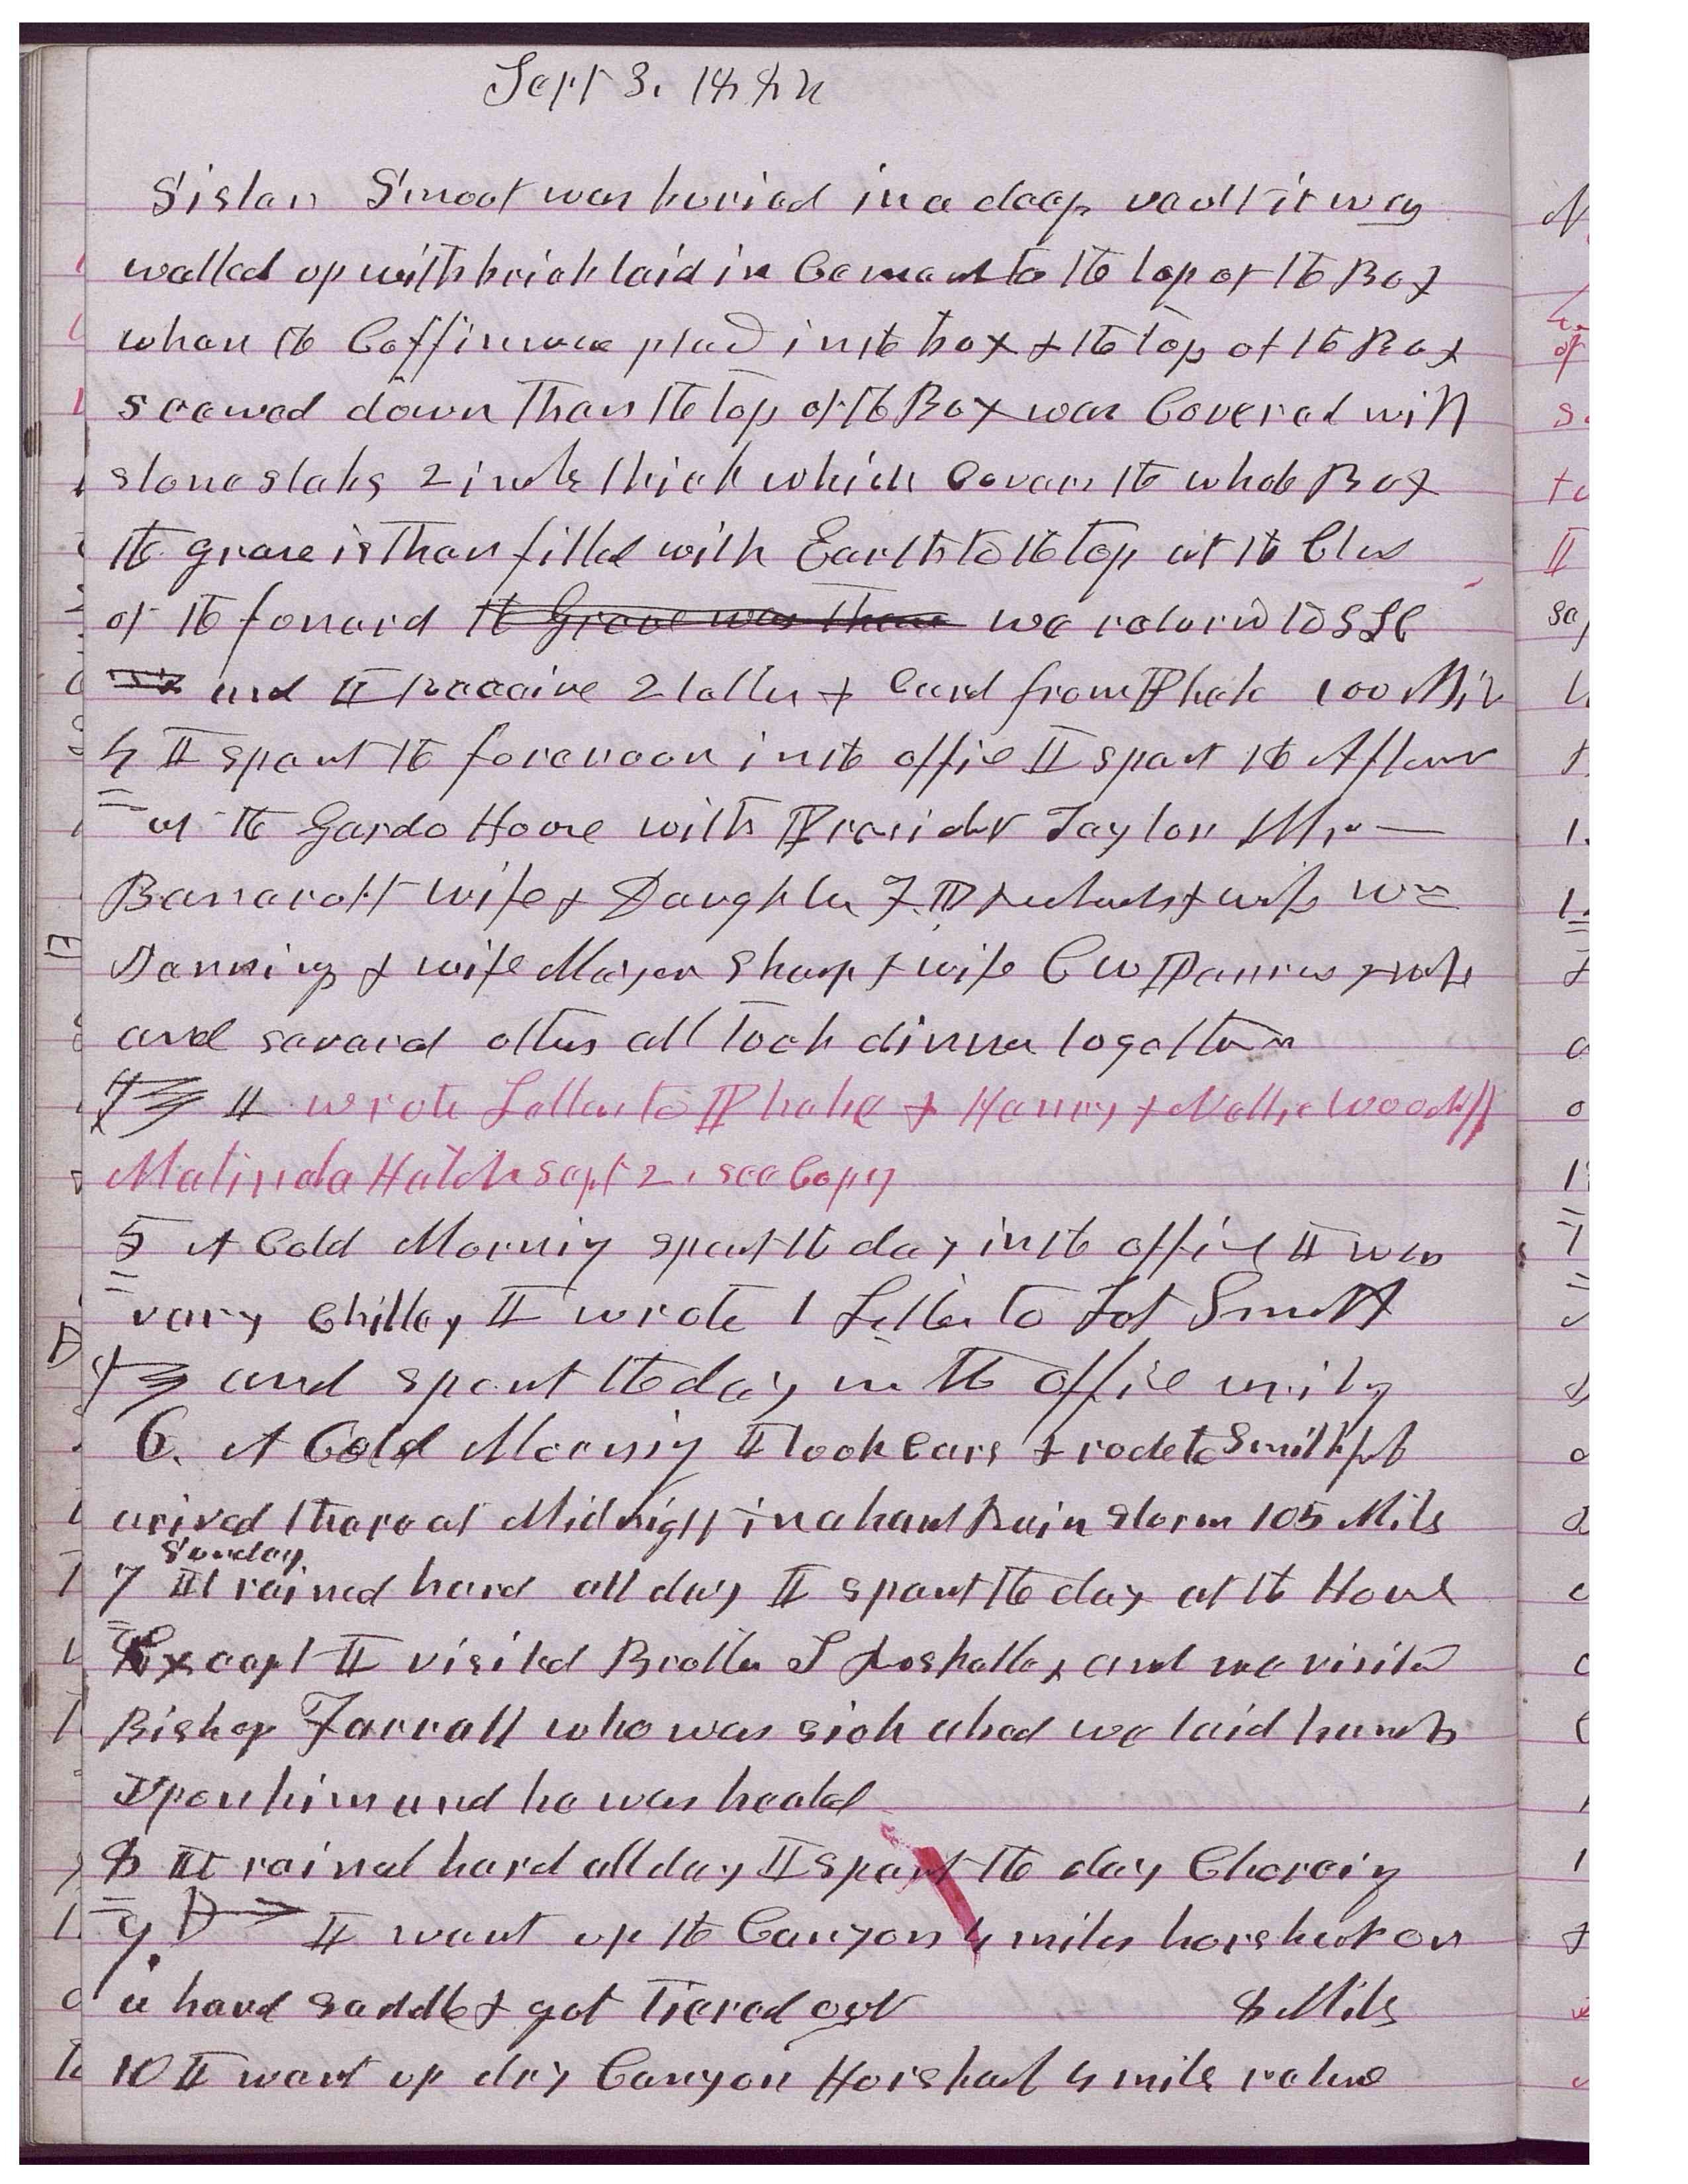 Sept 3. 1884
Sister Smoot was buried in a deep vault it was
walled up with brick laid in Cement to the top of the Box
when the Coffin was placed in the box & the top of the Box
screwed down Then the top of the Box was Covered with
stone slabs 2 inches thick which Covers the whole Box
the grave is then filled with Earth to the top at the Close
of the funeral the Grave was then we returned to SLC
and I Received 2 letters & Card from Phebe 100 Mils
4 I spent the forenoon in the office I spent the Afternoon
at the Gardo House with President Taylor Mr —
Bancroft wife & Daughter F. D Richards & wife Wm
Jennings & wife Mayor Sharp & wife C W Penrose & wife
and several others all took dinner together
I wrote Letters to Phebe & Henry & Nellie Woodruff
Matinda Hatch Sept 2. see Copy
5 A Cold Morning spent the day in the office I was
very Chilley I wrote 1 Letter to Lot Smith
and spent the day in the office
6. A Cold Morning I took Cars & rode to Smithfield
arived there at Midnight in a hard Rain Storm 105 Mils
Sunday
7 It rained hard all day I spent the day at the House
Except I visited Brother S Roskelley and we visited
Bishop Farrall who was sick abed we laid hands
upon him and he was healed
8 It rained hard all day I spent the day Choreing
9. I went up the Canyon 4 miles horsback on
a hard saddle & got Tiered out 8 Mils
10 I went up dry Canyon Horsback 4 mils